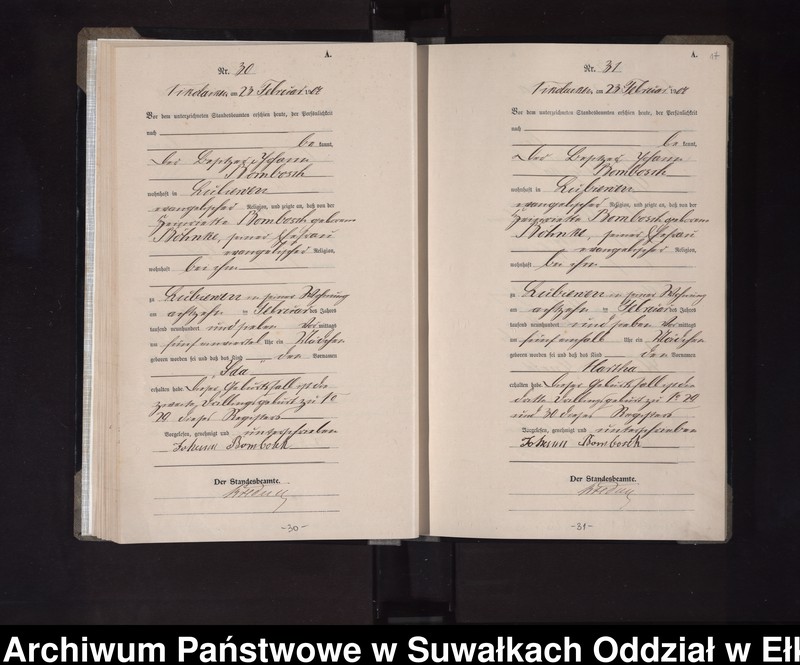 A.
Nr. 30
am 23 Februar 1908
Vor dem unterzeichneten Standesbeamten erschien heute, der Persönlichkeit
nach
be kannt,
der Besitzer Johann
Bombosch
wohnhaft in Lübewen
evangelischer Religion, und zeigte an, daß von der
Henriette Bombosch geborene
Böhnke, seiner Ehefrau
evangelischer Religion,
wohnhaft bei ihm
zu Lübewen in seiner Wohnung
am achtzehn ten Februar des Jahres
tausend neunhundert und Vor mittags
um fünf einviertel Uhr ein Mädchen
geboren worden sei und daß das Kind den Vornamen
Ida
erhalten habe. Dieser Geburtsfall ist die
zweite Geburt zu Nr
29 dieses Registers
Vorgelesen, genehmigt und unterschrieben
Johann Bombosch
Der Standesbeamte.
-30-
A. 17
Nr. 31
am 23 Februar 1908
Vor dem unterzeichneten Standesbeamten erschien heute, der Persönlichkeit
nach
be kannt,
der Besitzer Johann
Bombosch
wohnhaft in Lübewen
evangelischer Religion, und zeigte an, daß von der
Henriette Bombosch geborene
Böhnke, seiner Ehefrau
evangelischer Religion,
wohnhaft bei ihm
zu Lübewen in seiner Wohnung
am achtzehn ten Februar des Jahres
tausend neunhundert und Vor mittags
um fünf einhalb Uhr ein Mädchen
geboren worden sei und daß das Kind den Vornamen
Martha
erhalten habe. Dieser Geburtsfall ist der
dritte Geburt zu Nr 29
und 30 dieses Registers
Vorgelesen, genehmigt und unterschrieben
Johann Bombosch
Der Standesbeamte.
-31-
Archiwum Państwowe w Suwałkach Oddział w Eł